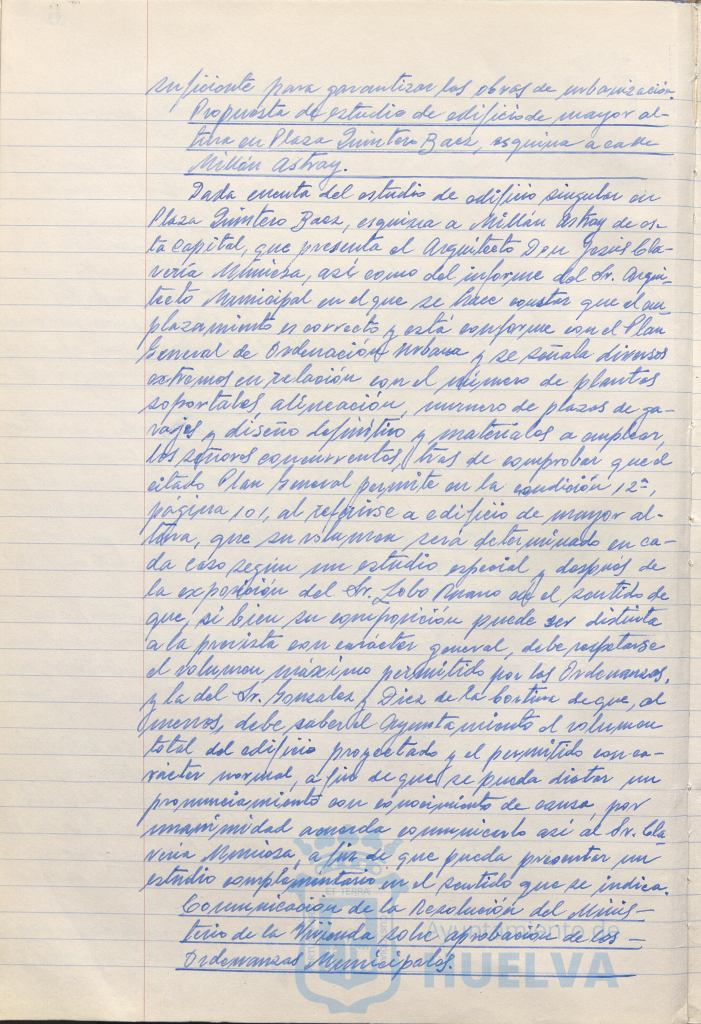 suficiente para garantizar las obras de urbanización.
Propuesta de estudio de edificio de mayor al-
tura en Plaza Quintero Baez, esquina a calle
Millán Astray.
Dada cuenta del estudio de edificio singular en
Plaza Quintero Baez, esquina a Millán Astray de es-
ta Capital, que presenta el Arquitecto Don Jesús Cla-
vería, así como del informe del Sr. Arqui-
tecto Municipal en el que se hace constar que el em-
plazamiento es correcto y está conforme con el Plan
General de Ordenación Urbana y se señala diversos
extremos en relación con el número de plantas
soportales, alineación, número de plazas de ga-
rajes y diseño definitivo y materiales a emplear,
los señores concurrentes, tras de comprobar que el
citado Plan General permite en la condición 12ª,
página 101, al referirse a edificio de mayor al-
tura, que su volumen será determinado en ca-
da caso según un estudio especial y después de
la exposición del Sr. Lobo en el sentido de
que, si bien su composición puede ser distinta
a la prevista con carácter general, debe respetarse
el volumen máximo permitido por las Ordenanzas,
y la del Sr. Gonzalez y Diez de la Cortina de que, al
menos, debe saber el Ayuntamiento el volumen
total del edificio proyectado y el permitido con ca-
rácter normal, a fin de que se pueda dictar un
pronunciamiento con conocimiento de causa, por
unanimidad acuerda comunicarlo así al Sr. Cla-
vería, a fin de que pueda presentar un
estudio complementario en el sentido que se indica.
Comunicación de la Resolución del Minis-
terio de la Vivienda sobre aprobación de las
Ordenanzas Municipales.
Ayuntamiento de
HUELVA